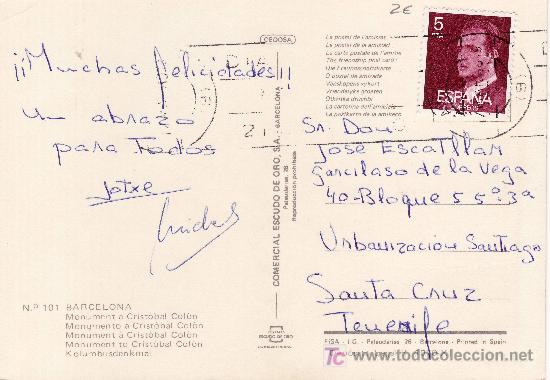 ¡¡Muchas felicidades!!
Un abrazo
para Todos
Jotxe
Nº 101 BARCELONA
Monument a Cristòbal Colón
Monumento a Cristóbal Colón
Monument à Cristóbal Colón
Monument to Cristóbal Colón
Kolumbusdenkmal
CEDOSA
COMERCIAL ESCUDO DE ORO, S.A. - BARCELONA
Palaudarias, 26
Reproducción prohibida
ESCUDO DE ORO
La postal de l'amistat
La postal de la amistad
La carte postale de l'amitié
The friendship post card
Die Freundpostkarte
O postal da amizade
Vänskapens vykort
Vriendelijke groeten
La cartolina dell'amicizia
2€
5
PTA
ESPAÑA
CORREOS
Sr. Don
José Escatllar
Garcilaso de la Vega
40-Bloque 5 5º-3ª
Urbanización Santiago
Santa Cruz
Tenerife
FISA - I.G. - Palaudarias, 26 - Barcelona - Printed in Spain
TC
todocoleccion.net